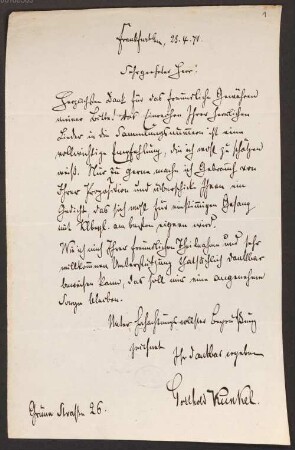 1
Frankfurt a/m, 23.4.78.
Sehrgeehrter Herr!
Herzlichsten Dank für das freundliche Gewähren
meiner Bitte! Das Einreihen Ihrer herrlichen
Lieder in die Sammlungsnummern ist eine
vollwichtige Empfehlung, die ich wohl zu schätzen
weiß. Nur zu gerne mache ich Gebrauch von
Ihrer Proposition und überschicke Ihnen ein
Gedicht das sich wohl für einstimmigen Gesang
mit Clavbegl. am besten eignen wird.
Wie ich mich Ihrer freundlichen Theilnahme und sehr
willkommenen Unterstützung thatsächlich dankbar
beweisen kann, das soll mir eine angenehme
Sorge bleiben.
Unter hochachtungsvollster Begrüßung
zeichnet
Ihr dankbar ergebener
Gotthold Kunkel.
Grüne Straße 26.